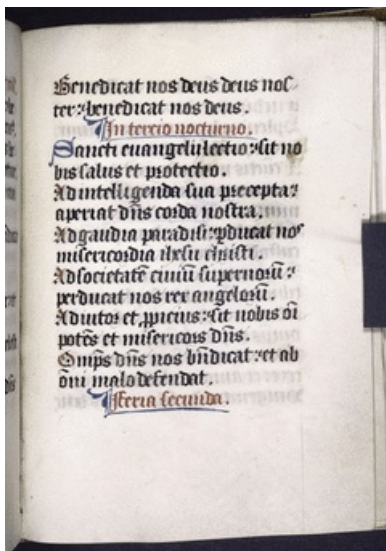 Benedicat nos deus deus nos
ter: benedicat nos deus.
In tercio nocturno.
Sancti euangelii lectio: sit no
bis salus et protectio.
Ad intelligenda sua precepta:
aperiat dn̄s corda nostra.
Ad gaudia paradisi: ꝑducat nos
misericordia ihesu christi.
Ad societatē ciuiū supernoꝝ:
perducat nos rex angeloꝝ.
et ꝓpicius: sit nobis oī
potēs et misericors dn̄s.
Omp̄s dn̄s nos bn̄dicat: et ab
om̄i malo defendat.
Feria secunda.